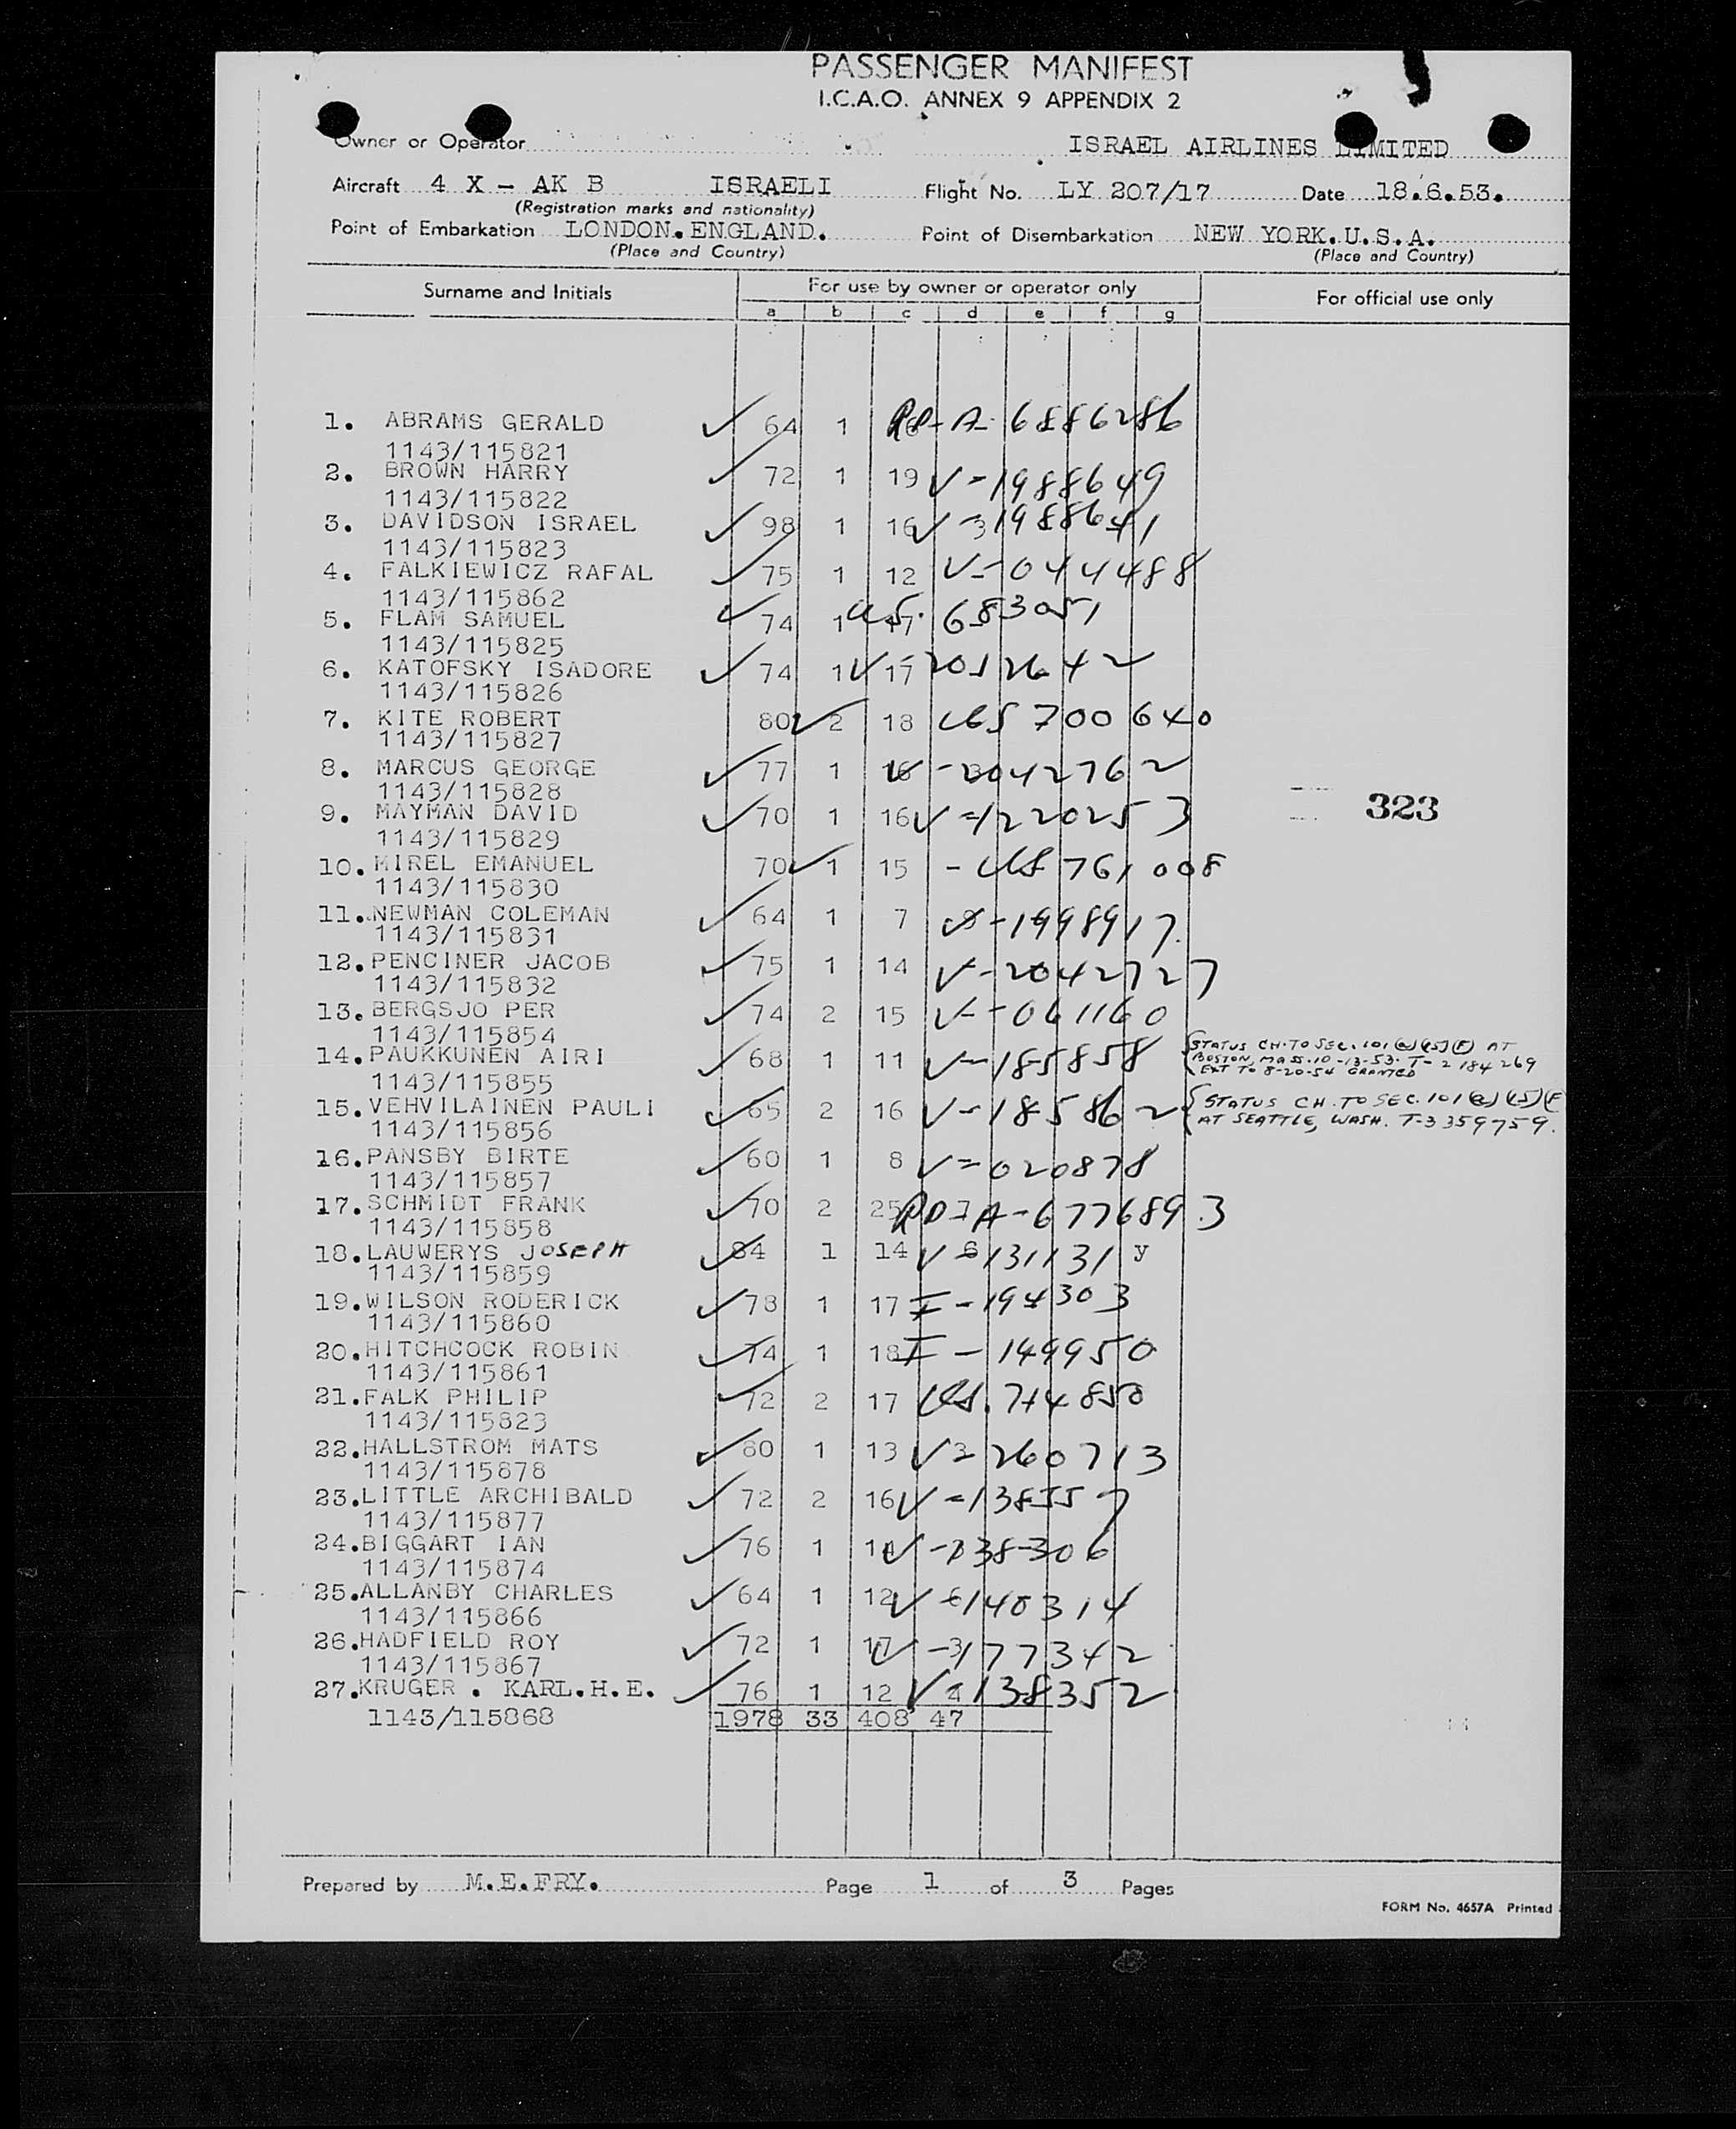 PASSENGER MANIFEST
I.C.A.O. ANNEX 9 APPENDIX 2
Owner or Operator ISRAEL AIRLINES LIMITED
Aircraft 4 X - AK B ISRAELI Flight No. LY 207/17 Date 18.6.53.
(Registration marks and nationality)
Point of Embarkation LONDON. ENGLAND. Point of Disembarkation NEW YORK. U.S.A.
(Place and Country) (Place and Country)
Surname and Initials For use by owner or operator only For official use only
a b c d e f g
1. ABRAMS GERALD 64 1 A- 6886286
1143/115821
2. BROWN HARRY 72 1 19 V-1988649
1143/115822
3. DAVIDSON ISRAEL 98 1 16 V-1988641
1143/115823
4. FALKIEWICZ RAFAL 75 1 12 V-044488
1143/115862
5. FLAM SAMUEL 74 1 17 US. 683051
1143/115825
6. KATOFSKY ISADORE 74 1 17 V-2012642
1143/115826
7. KITE ROBERT 80 2 18 US 700640
1143/115827
8. MARCUS GEORGE 77 1 V-2042762
1143/115828
9. MAYMAN DAVID 70 1 16 V-1220253
1143/115829
323
10. MIREL EMANUEL 70 1 15 - US 761008
1143/115830
11. NEWMAN COLEMAN 64 1 7 V-1998917
1143/115831
12. PENCINER JACOB 75 1 14 V-2042727
1143/115832
13. BERGSJO PER 74 2 15 V-061160
1143/115854
14. PAUKKUNEN AIRI 68 1 11 V-185858 STATUS CH. TO SEC. 101(a)(15)(F) AT
BOSTON, MASS. 10-13-53. T-2184269
EXT TO 8-20-54 GRANTED
1143/115855
15. VEHVILAINEN PAULI 65 2 16 V-185862 STATUS CH. TO SEC. 101(a)(15)(F)
AT SEATTLE, WASH. T-3359759.
1143/115856
16. PANSBY BIRTE 60 1 8 V-020878
1143/115857
17. SCHMIDT FRANK 70 2 25 A-6776893
1143/115858
18. LAUWERYS JOSEPH 84 1 14 6 V-131131 y
1143/115859
19. WILSON RODERICK 78 1 17 I-194303
1143/115860
20. HITCHCOCK ROBIN 74 1 18 I-149950
1143/115861
21. FALK PHILIP 72 2 17 US. 714850
1143/115823
22. HALLSTROM MATS 80 1 13 3 V-260713
1143/115878
23. LITTLE ARCHIBALD 72 2 16 V-138557
1143/115877
24. BIGGART IAN 76 1 14 V-138306
1143/115874
25. ALLANBY CHARLES 64 1 12 6 V-140314
1143/115866
26. HADFIELD ROY 72 1 17 3 V-177342
1143/115867
27. KRUGER . KARL.H.E. 76 1 12 4 V-138352
1143/115868 1978 33 408 47
Prepared by M.E.FRY. Page 1 of 3 Pages
FORM No. 4657A Printed